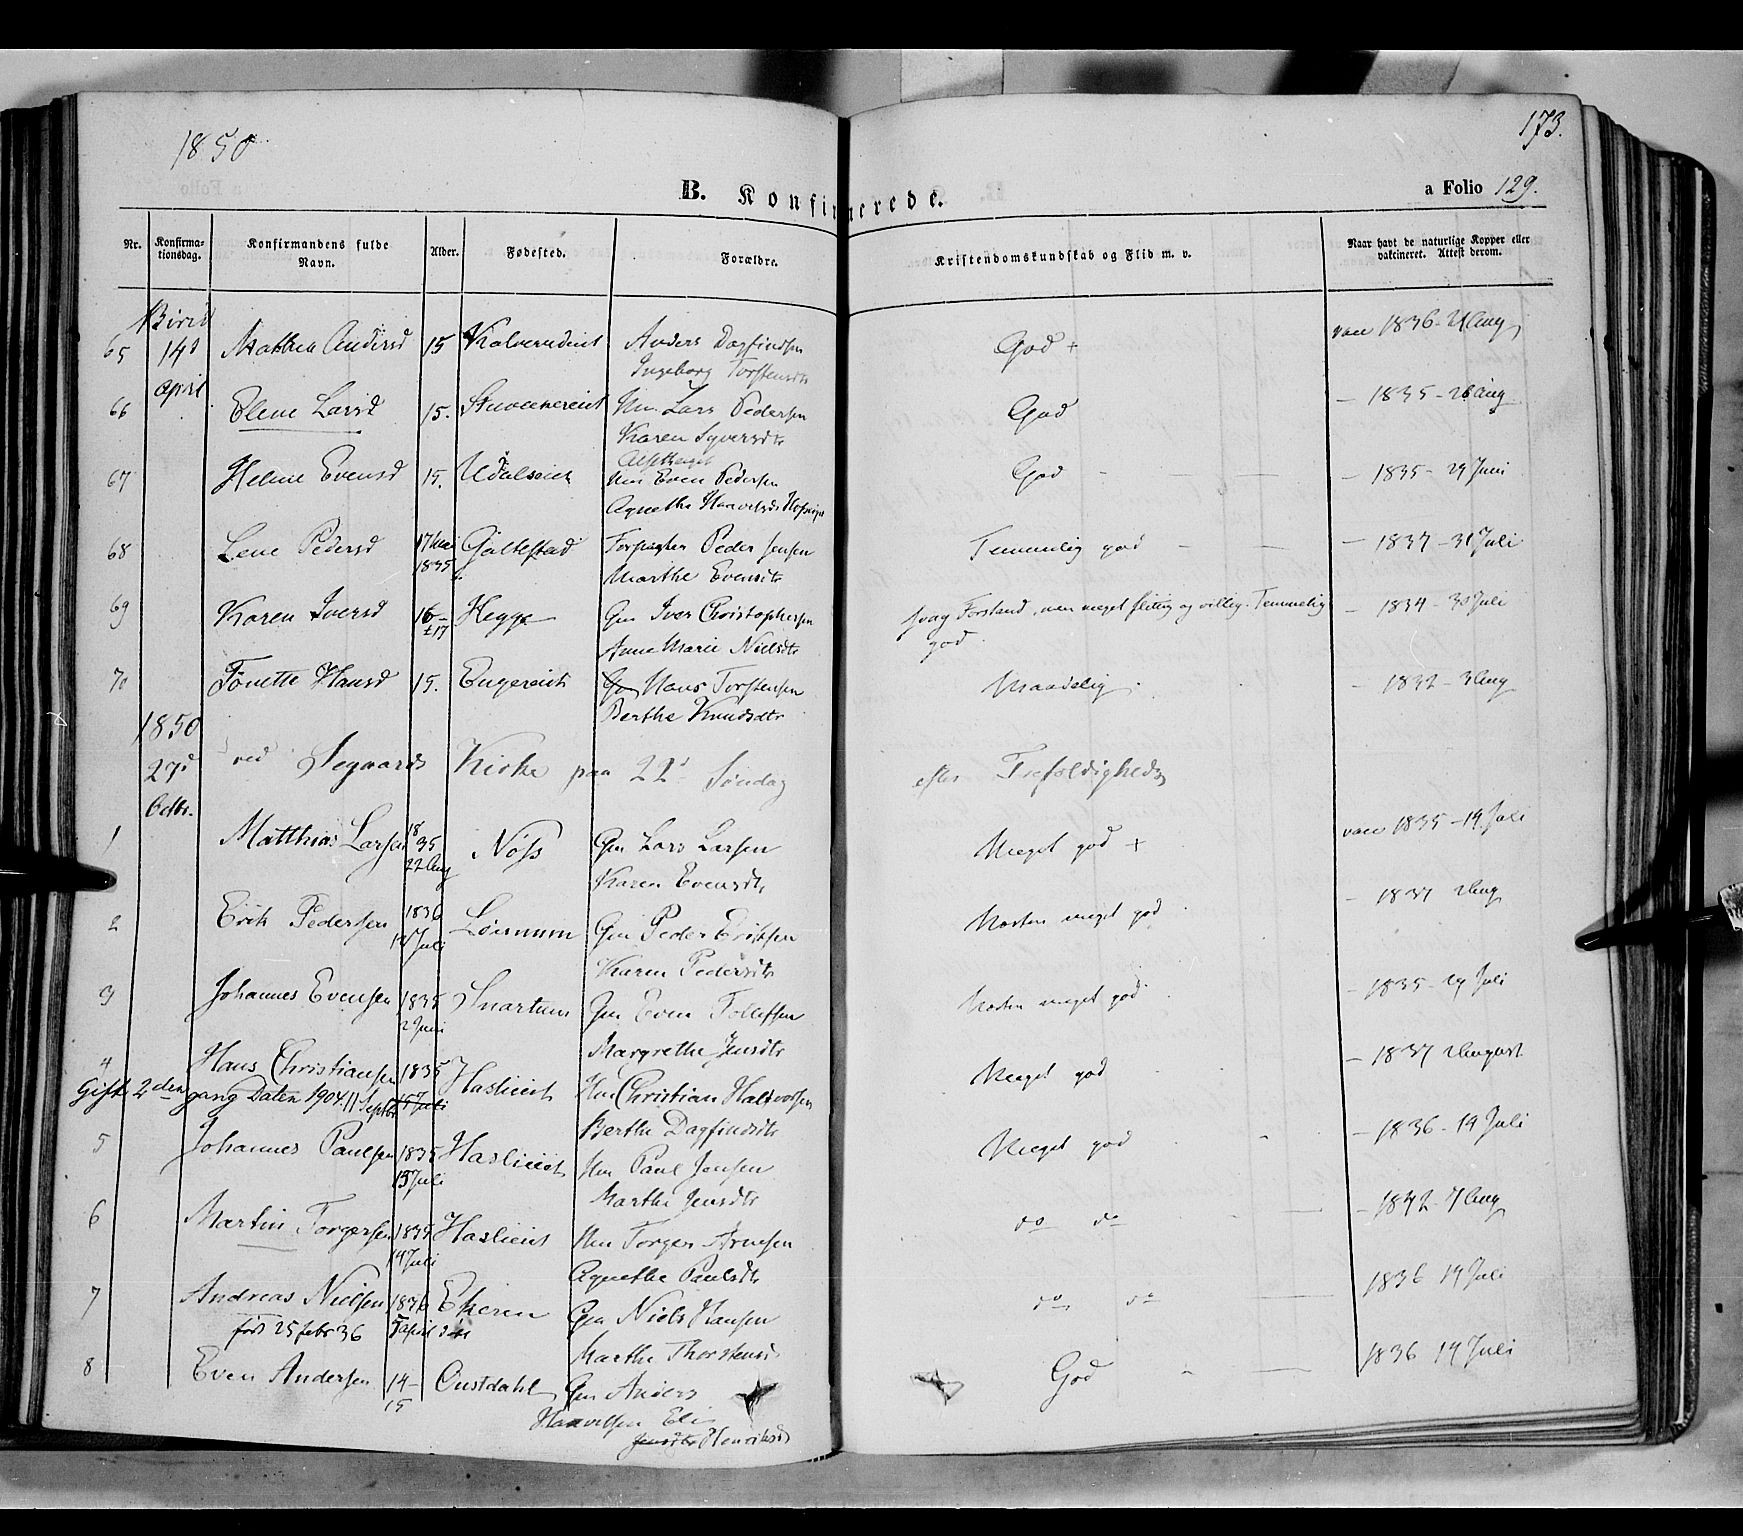 1850
173.
B. Konfirmerede.
a Folio 129.
Nr. Konfirmationsdag. Konfirmandens fulde Navn. Alder. Fødested. Forældre. Kristendomskundskab og Flid m. v. Naar havt de naturlige Kopper eller vakcineret. Attest derom.
Birid
65 14d Mathea Andersd 15 Anders Dagfindsen God + vacc 1836 - 21 Aug
Ingeborg Torstensdtr
April
66 Elene Larsd 15. Hm. Lars Pedersen God — 1835 - 26 Aug
Karen Syversdtr
67 Helene Evensd 15. Hm Even Pedersen God - — — 1835 - 29 Juni
Agnethe Haavelsd
68 Lene Pedersd 17 Mai Galtestad Peder Jensen Temmelig god - — — 1837 - 31 Juli
1835 Marthe Evensdtr
69 Karen Iversd 16- Hegge Gm Iver Christophersen svag Forstand, men meget flittig og villig. Temmelig — 1834 - 30 Juli
17 god
Anne Marie Nielsdtr
70 Tonette Hansd 15. Engereiet Hans Torstensen Maadelig - 1832 - 3 Aug
Berthe Knudsdtr
1850
27d ved Segaards Kirke paa 22d Søndag efter Trefoldighed
Octbr.
1 Matthias Larsen 18 35 Nøss Gm Lars Larsen Meget god + vacc 1835 - 19 Juli
22 Aug Karen Evensdtr
2 Erik Pedersen 1836 Gm Peder Eriksen Næsten meget god - 1837 Aug
Juli Karen Pedersdtr
3 Johannes Evensen 1835 Snartum Gm Even Tollefsen Næsten meget god - 1835 - 29 Juli
2 Juni Margrethe Jensdtr
4 Hans Christiansen 1835 Haslieiet Hm Christian Halvorsen Meget god — 1837 August
Gift 2den gang Daten 1904. 11 Septbr 15 Juli
Berthe Dagfindsdtr
5 Johannes Paulsen 1835 Haslieiet Hm Paul Jensen Meget god - — 1836 - 19 Juli
15 Juli Marthe Jensdtr
6 Martin Torgersen 1835 Haslieiet Hm Torger Arnesen do do - — - 1842 - 7 Aug
14 Juli Agnethe Paulsdtr
7 Andreas Nielsen 1836 Ekeren Gm Niels Hansen do do — 1836 19 Juli
født 25 febr 36 5 April
Marthe Thorstensd
8 Even Andersen 14- Onstdahl Gm Anders God - — 1836 19 Juli
15 Haavelsen Eli
Jensdtr Henriksd